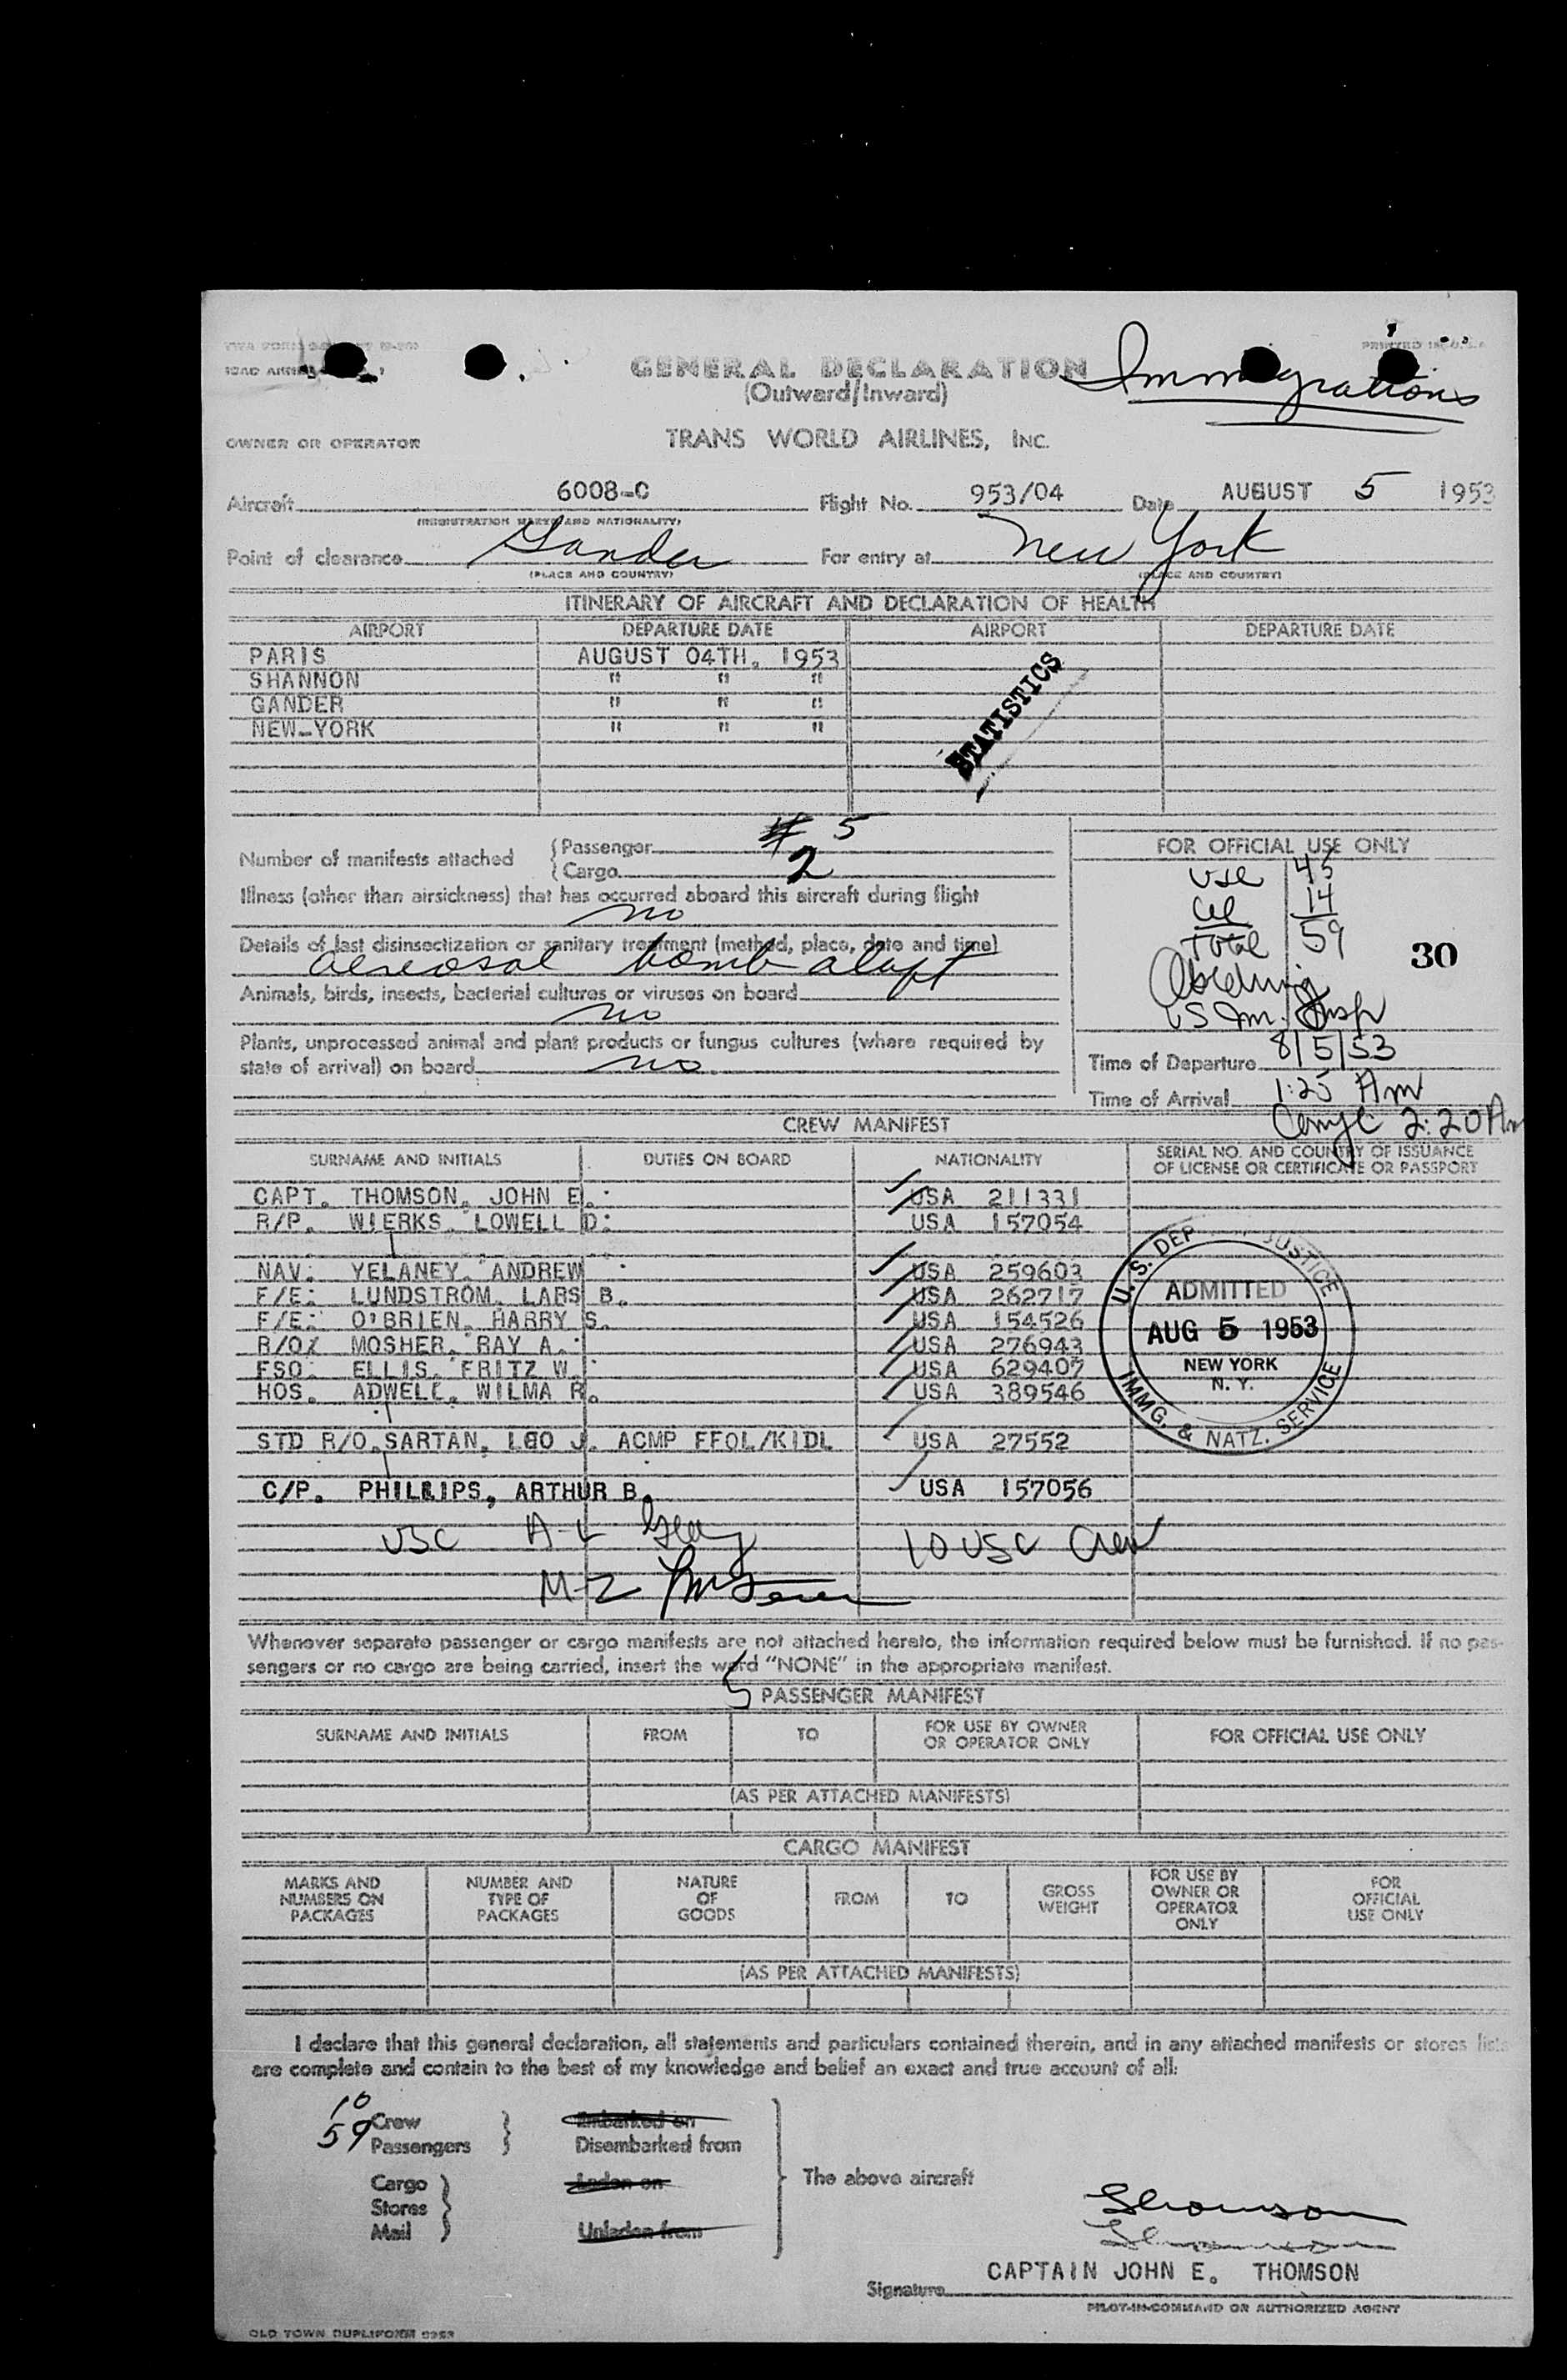 PRINTED IN U.S.A.
Immigrations
GENERAL DECLARATION
(Outward/Inward)
OWNER OR OPERATOR TRANS WORLD AIRLINES, INC.
Aircraft 6008-C Flight No. 953/04 Date AUGUST 5 1953
(REGISTRATION MARKS AND NATIONALITY)
Point of clearance Gander For entry at New York
(PLACE AND COUNTRY) (PLACE AND COUNTRY)
ITINERARY OF AIRCRAFT AND DECLARATION OF HEALTH
AIRPORT DEPARTURE DATE AIRPORT DEPARTURE DATE
PARIS AUGUST 04TH. 1953
SHANNON " " "
GANDER " " "
NEW-YORK " " "
STATISTICS
Number of manifests attached
Passenger 5
Cargo 2
Illness (other than airsickness) that has occurred aboard this aircraft during flight
no
Details of last disinsectization or sanitary treatment (method, place, date and time)
aereosol bomb
Animals, birds, insects, bacterial cultures or viruses on board
no
Plants, unprocessed animal and plant products or fungus cultures (where required by
state of arrival) on board no
FOR OFFICIAL USE ONLY
USC 45
14
Total 59
30
US Im. Insp
8/5/53
Time of Departure
1:25 Am
Time of Arrival
2:20 Am
CREW MANIFEST
SURNAME AND INITIALS DUTIES ON BOARD NATIONALITY SERIAL NO. AND COUNTRY OF ISSUANCE
OF LICENSE OR CERTIFICATE OR PASSPORT
CAPT. THOMSON, JOHN E. USA 211331
R/P. WIERKS, LOWELL D. USA 157054
NAV. YELANEY, ANDREW USA 259603
F/E. LUNDSTROM, LARS B. USA 262717
F/E. O'BRIEN, HARRY S. USA 154526
R/O. MOSHER, RAY A. USA 276943
FSO. ELLIS, FRITZ W. USA 629407
HOS. ADWELL, WILMA R. USA 389546
STD R/O.SARTAN, LEO J. ACMP FFOL/KIDL USA 27552
C/P. PHILLIPS, ARTHUR B. USA 157056
U.S. DEP JUSTICE
ADMITTED
AUG 5 1953
NEW YORK
N. Y.
IMMG. & NATZ. SERVICE
USC 10 USC Crew
Whenever separate passenger or cargo manifests are not attached hereto, the information required below must be furnished. If no pas-
sengers or no cargo are being carried, insert the word "NONE" in the appropriate manifest.
5 PASSENGER MANIFEST
SURNAME AND INITIALS FROM TO FOR USE BY OWNER OR OPERATOR ONLY FOR OFFICIAL USE ONLY
(AS PER ATTACHED MANIFESTS)
CARGO MANIFEST
MARKS AND NUMBERS ON PACKAGES NUMBER AND TYPE OF PACKAGES NATURE OF GOODS FROM TO GROSS WEIGHT FOR USE BY OWNER OR OPERATOR ONLY FOR OFFICIAL USE ONLY
(AS PER ATTACHED MANIFESTS)
I declare that this general declaration, all statements and particulars contained therein, and in any attached manifests or stores lists
are complete and contain to the best of my knowledge and belief an exact and true account of all:
10 Crew Embarked on
59 Passengers Disembarked from
The above aircraft
Cargo Laden on
Stores
Mail Unladen from
Thomson
Thomson
CAPTAIN JOHN E. THOMSON
Signature
PILOT-IN-COMMAND OR AUTHORIZED AGENT
OLD TOWN DUPLIFORM